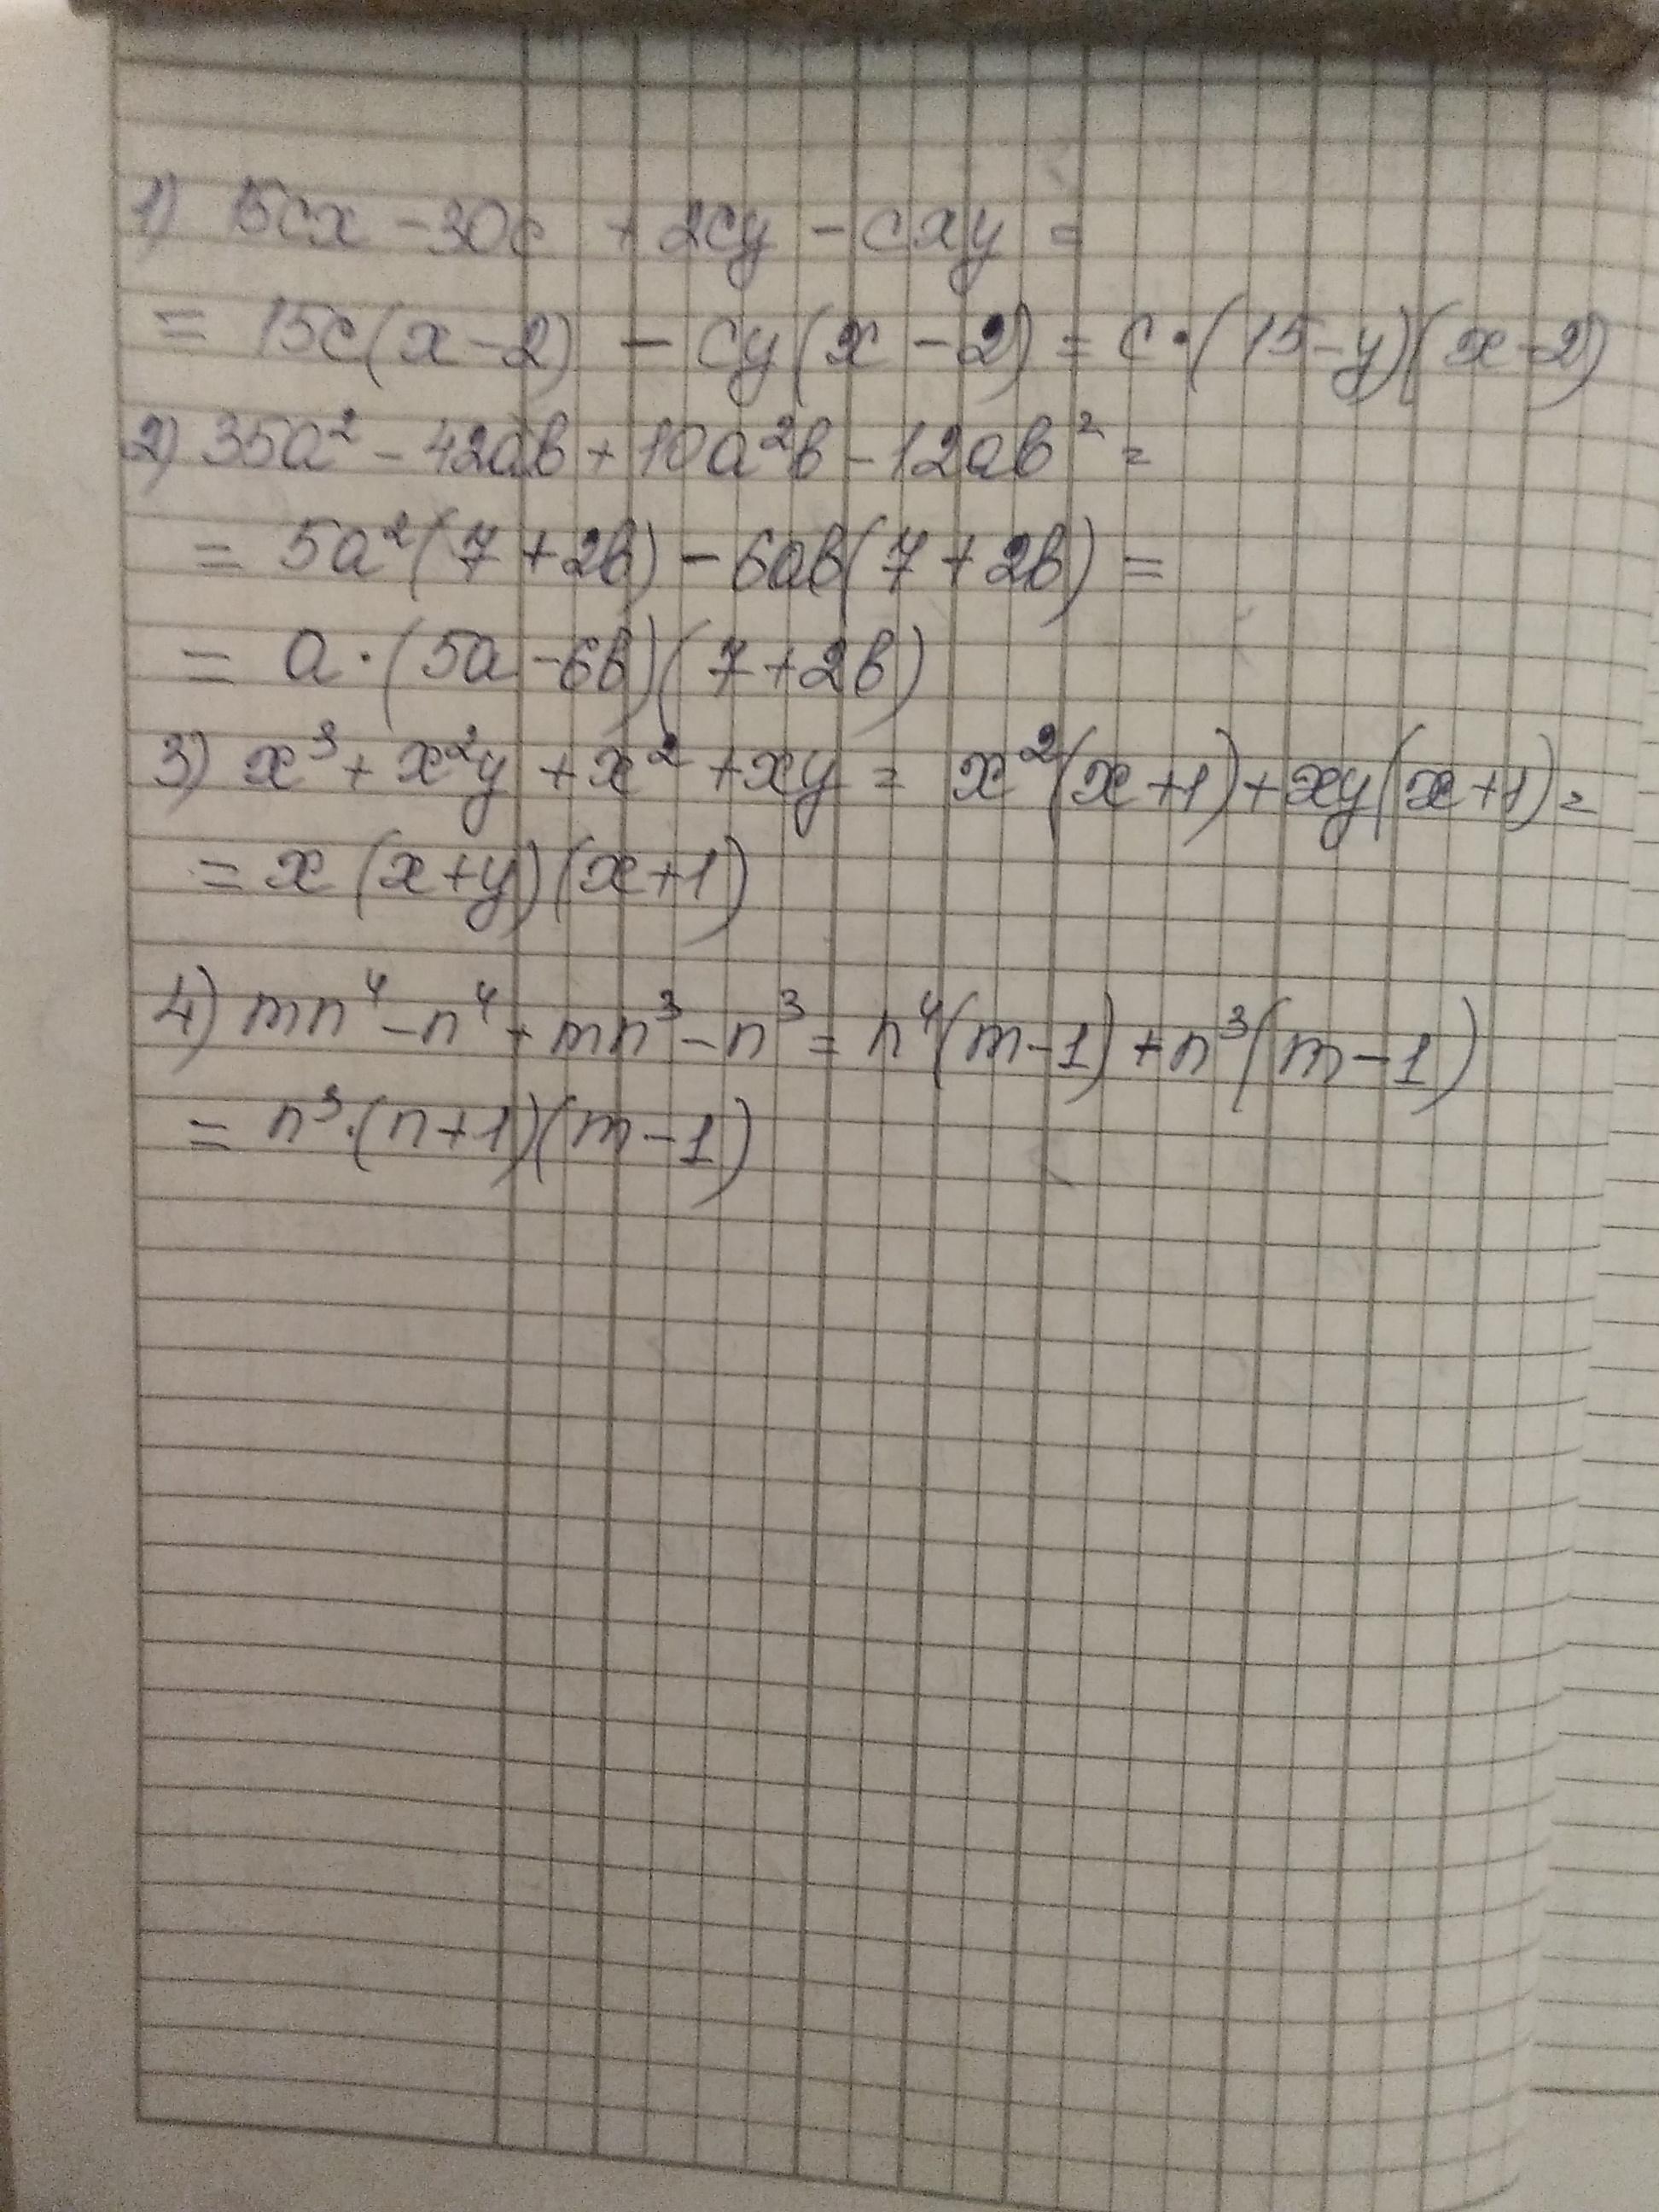 1) 15cx - 30c + 2cy - cxy =
= 15c(x-2) - cy(x-2) = c·(15-y)(x-2)
2) 35a² - 42ab + 10a²b - 12ab² =
= 5a²(7+2b) - 6ab(7+2b) =
= a·(5a-6b)(7+2b)
3) x³ + x²y + x² + xy = x²(x+1) + xy(x+1) =
= x(x+y)(x+1)
4) mn⁴ - n⁴ + mn³ - n³ = n⁴(m-1) + n³(m-1)
= n³·(n+1)(m-1)